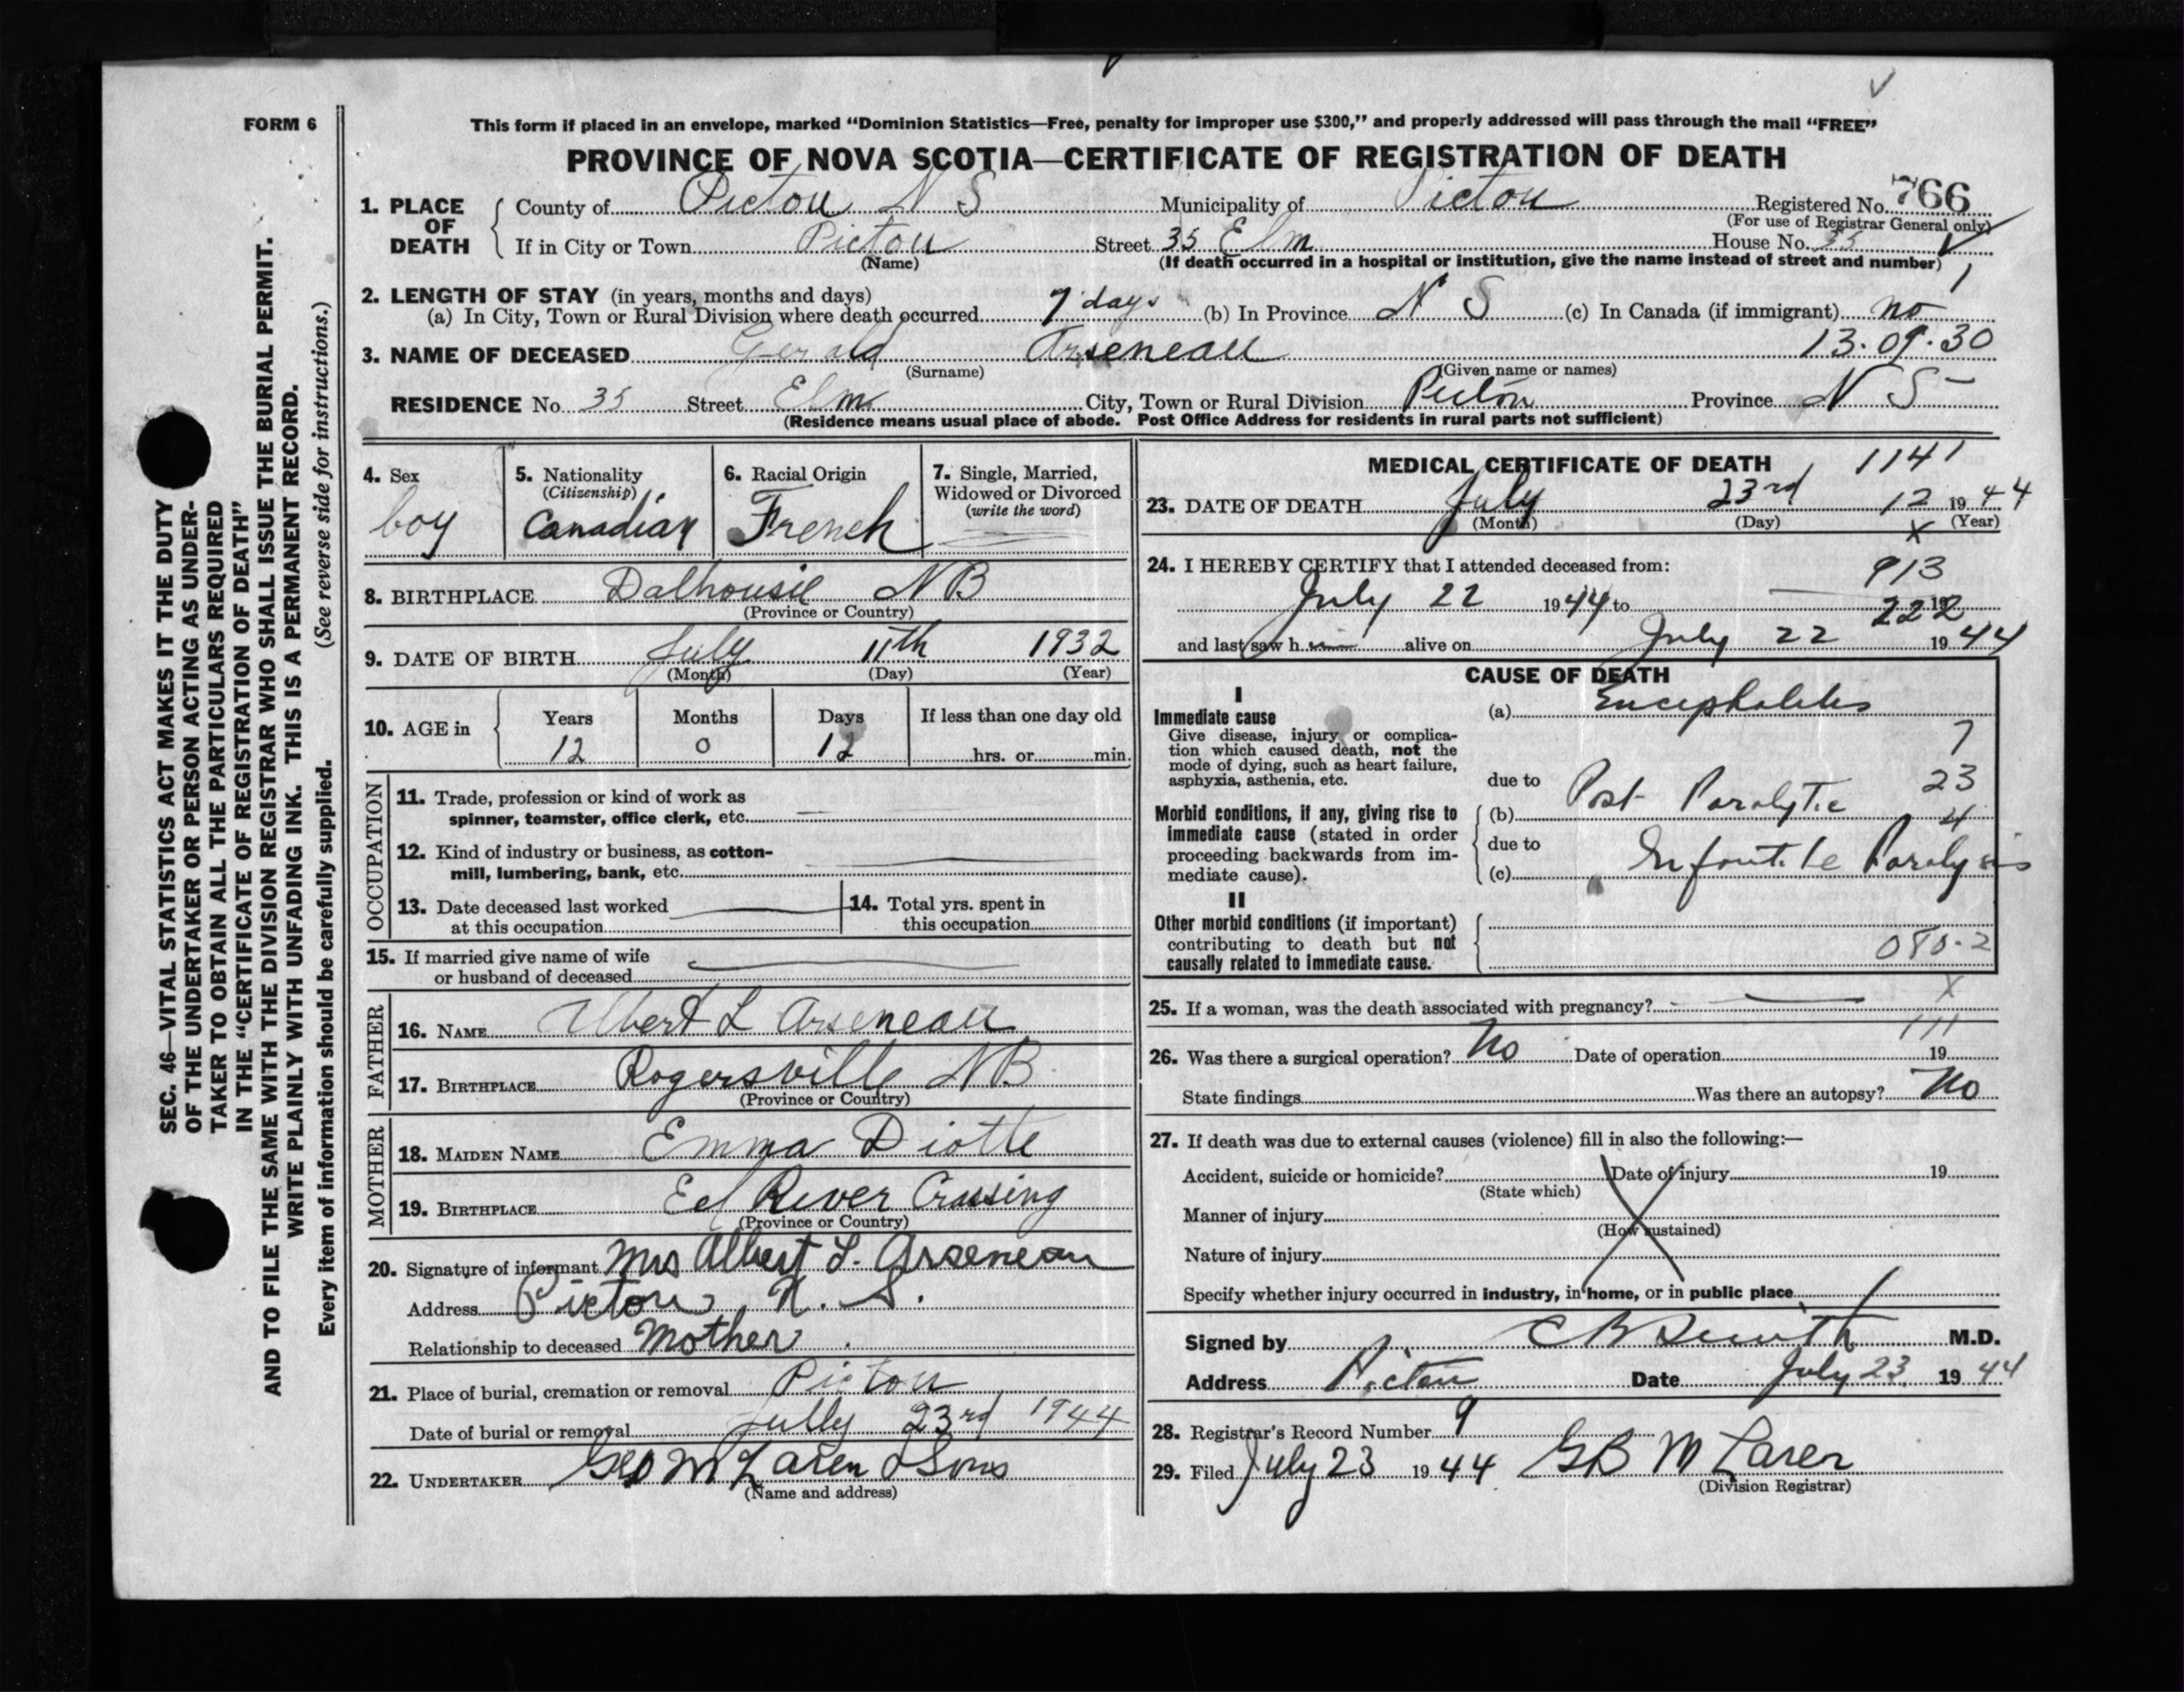 FORM 6
This form if placed in an envelope, marked “Dominion Statistics—Free, penalty for improper use $300,” and properly addressed will pass through the mail “FREE”
PROVINCE OF NOVA SCOTIA—CERTIFICATE OF REGISTRATION OF DEATH
1. PLACE OF DEATH County of Pictou N S Municipality of Pictou Registered No. 766
(For use of Registrar General only)
If in City or Town Pictou Street 35 Elm House No. 35
(Name) (If death occurred in a hospital or institution, give the name instead of street and number)
1
2. LENGTH OF STAY (in years, months and days)
(a) In City, Town or Rural Division where death occurred 7 days (b) In Province N S (c) In Canada (if immigrant) no
3. NAME OF DECEASED Gerald Arseneau 13.09.30
(Surname) (Given name or names)
RESIDENCE No. 35 Street Elm City, Town or Rural Division Pictou Province N S
(Residence means usual place of abode. Post Office Address for residents in rural parts not sufficient)
4. Sex boy
5. Nationality (Citizenship) Canadian
6. Racial Origin French
7. Single, Married, Widowed or Divorced (write the word)
8. BIRTHPLACE Dalhousie N B
(Province or Country)
9. DATE OF BIRTH July 11th 1932
(Month) (Day) (Year)
10. AGE in Years Months Days If less than one day old
12 0 12 hrs. or min.
OCCUPATION
11. Trade, profession or kind of work as
spinner, teamster, office clerk, etc.
12. Kind of industry or business, as cotton-
mill, lumbering, bank, etc.
13. Date deceased last worked
at this occupation
14. Total yrs. spent in
this occupation
15. If married give name of wife
or husband of deceased
FATHER
16. NAME Albert L Arseneau
17. BIRTHPLACE Rogersville N B
(Province or Country)
MOTHER
18. MAIDEN NAME Emma Diotte
19. BIRTHPLACE Eel River Crossing
(Province or Country)
20. Signature of informant Mrs Albert L. Arseneau
Address Pictou, N. S.
Relationship to deceased Mother
21. Place of burial, cremation or removal Pictou
Date of burial or removal Jully 23rd 1944
22. UNDERTAKER Geo McLaren & Sons
(Name and address)
MEDICAL CERTIFICATE OF DEATH 1141
23. DATE OF DEATH July 23rd 12 1944
(Month) (Day) X (Year)
24. I HEREBY CERTIFY that I attended deceased from: 913
July 22 1944 to 19 222
and last saw him alive on July 22 1944
CAUSE OF DEATH
I
Immediate cause
Give disease, injury or complica-
tion which caused death, not the
mode of dying, such as heart failure,
asphyxia, asthenia, etc.
(a) Encephalitis
7
due to
23
Morbid conditions, if any, giving rise to
immediate cause (stated in order
proceeding backwards from im-
mediate cause).
(b) Post Paralytic
4
due to
(c) Infantile Paralysis
II
Other morbid conditions (if important)
contributing to death but not
causally related to immediate cause.
080.2
25. If a woman, was the death associated with pregnancy? X
111
26. Was there a surgical operation? No Date of operation 19
State findings Was there an autopsy? No
27. If death was due to external causes (violence) fill in also the following:—
Accident, suicide or homicide? Date of injury 19
(State which)
Manner of injury
(How sustained)
Nature of injury
Specify whether injury occurred in industry, in home, or in public place
Signed by C B Smith M.D.
Address Pictou Date July 23 1944
28. Registrar's Record Number 9
29. Filed July 23 1944 G B McLaren
(Division Registrar)
SEC. 46—VITAL STATISTICS ACT MAKES IT THE DUTY
OF THE UNDERTAKER OR PERSON ACTING AS UNDER-
TAKER TO OBTAIN ALL THE PARTICULARS REQUIRED
IN THE “CERTIFICATE OF REGISTRATION OF DEATH”
AND TO FILE THE SAME WITH THE DIVISION REGISTRAR WHO SHALL ISSUE THE BURIAL PERMIT.
WRITE PLAINLY WITH UNFADING INK. THIS IS A PERMANENT RECORD.
Every item of information should be carefully supplied. (See reverse side for instructions.)